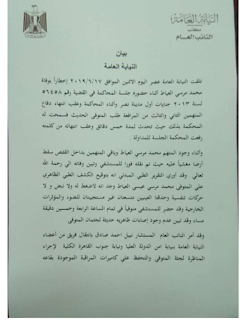 النيابة العامة
مكتب
النائب العام
بيان
النيابة العامة
تلقت النيابة العامة عصر اليوم الاثنين الموافق ٢٠١٩/٦/١٧ إخطاراً بوفاة
محمد مرسي العياط أثناء حضوره جلسة المحاكمة في القضية رقم ٥٦٤٥٨
لسنة ٢٠١٣ جنايات أول مدينة نصر وأثناء المحاكمة وعقب انتهاء دفاع
المتهمين الثاني والثالث من المرافعة طلب المتوفى الحديث فسمحت له
المحكمة بذلك حيث تحدث لمدة خمس دقائق وعقب انتهائه من كلمته
رفعت المحكمة الجلسة للمداولة
وأثناء وجود المتهم محمد مرسي العياط وباقي المتهمين بداخل القفص سقط
أرضا مغشياً عليه حيث تم نقله فوراً للمستشفى وتبين وفاته الي رحمة الله
تعالى وقد أورى التقرير الطبي المبدئي أنه بتوقيع الكشف الطبي الظاهري
على المتوفى محمد محمد مرسي عيسى العياط وجد أنه لا ضغط له ولا نبض ولا
حركات تنفسية وحدقتا العينين متسعتان غير مستجيبتان للضوء والمؤثرات
الخارجية وقد حضر للمستشفى متوفياً في تمام الساعة الرابعة وخمسين دقيقة
مساء وقد تبين عدم وجود إصابات ظاهرية حديثة لجثمان المتوفى
وقد أمر النائب العام المستشار نبيل أحمد صادق بانتقال فريق من أعضاء
النيابة العامة بنيابة أمن الدولة العليا ونيابة جنوب القاهرة الكلية لإجراء
المناظرة لجثة المتوفى والتحفظ على كاميرات المراقبة الموجودة بقاعة